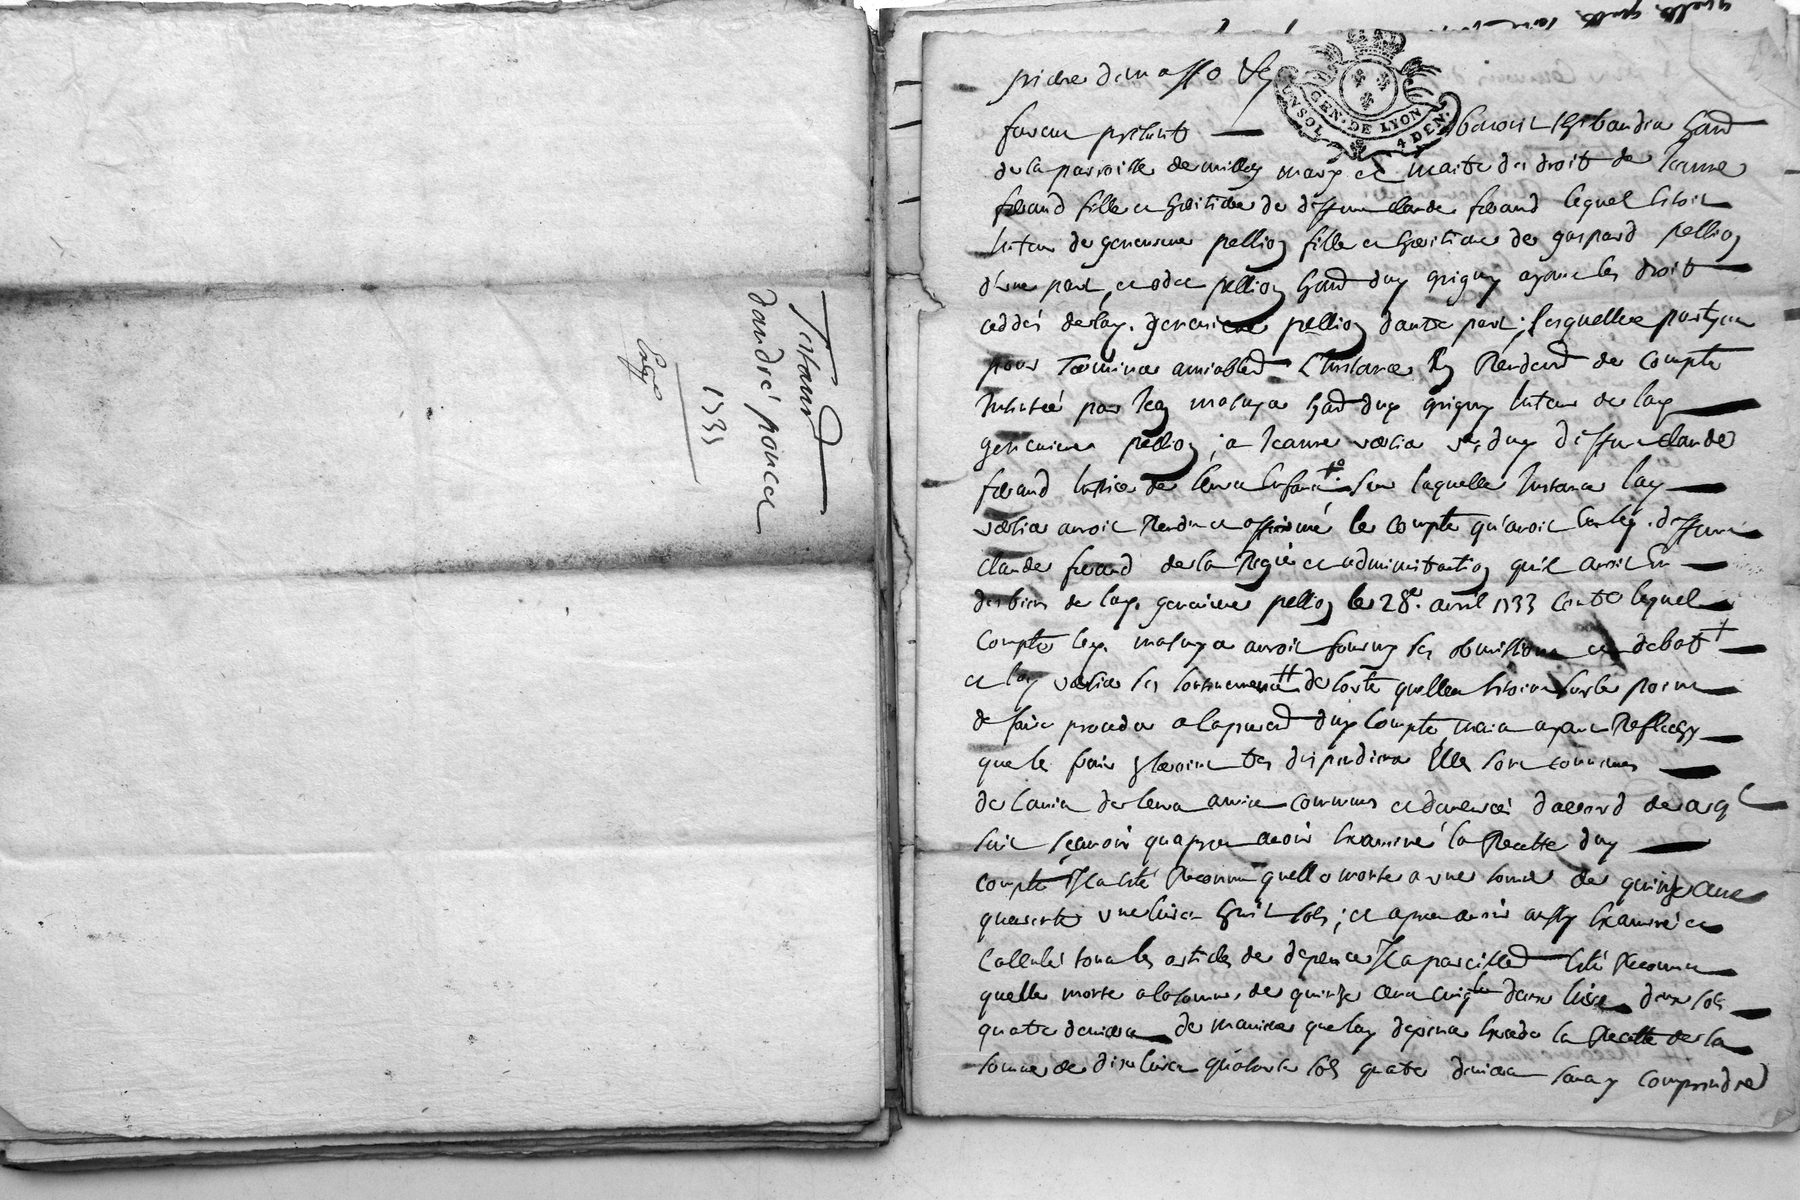 Testament
d'andré poncet
1733
GEN. DE LYON
UN SOL 4 DEN.
furent presents benoit thibaudier hab.t
de la parroisse de millery mary et maitre des droit de Jeanne
ferand fille et heritiere de deffunt claude ferand lequel estoit
tuteur de genevieve pellion fille et heritiere de gaspard pellion
d'une part, et pellion hab.t dud grigny ayant les droit
ceddés de lad. genevieve pellion dautre part; lesquelles partyes
pour terminer amiablem.t L'instance En Rendem.t de compte
Intentée par hab.t dud grigny tuteur de lad
genevieve pellion; a Jeanne v.e dud deffunt claude
ferand tutrice de leurs Enfans. sur laquelle Instance lad
avoit Rendu et affirmé le compte qu'avoit led. deffunt
claude ferand de la Regie et administration qu'il avoit Eu
des biens de lad. genevieve pellion le 28e. avril 1733 contre lequel
compte led. avoit fourny ses obmissions et debat
et lad ses soutenements de sorte quelles estoient sur le point
de faire proceder a lapurem.t dud compte, mais ayant Reflechy
que les frais seroient tres dispendieux Elles sont convenues
de lavis de leurs amis communs et demeurées daccord de ce q
suit sçavoir quapres avoir Examiné la Recette dud
compte Il a esté Reconnu quelle monte a une somme de quinze cent
quarante une livres huit sols; et apres avoir aussy Examiné et
Calculé tous les articles de depense Il a pareillem.t esté Reconnu
quelle monte a la somme de quinze cens cinq.te deux livres deux sols
quatre deniers de maniere que lad depense Excede la Recette de la
somme de dix livres quatorze sols quatre deniers sans y comprendre